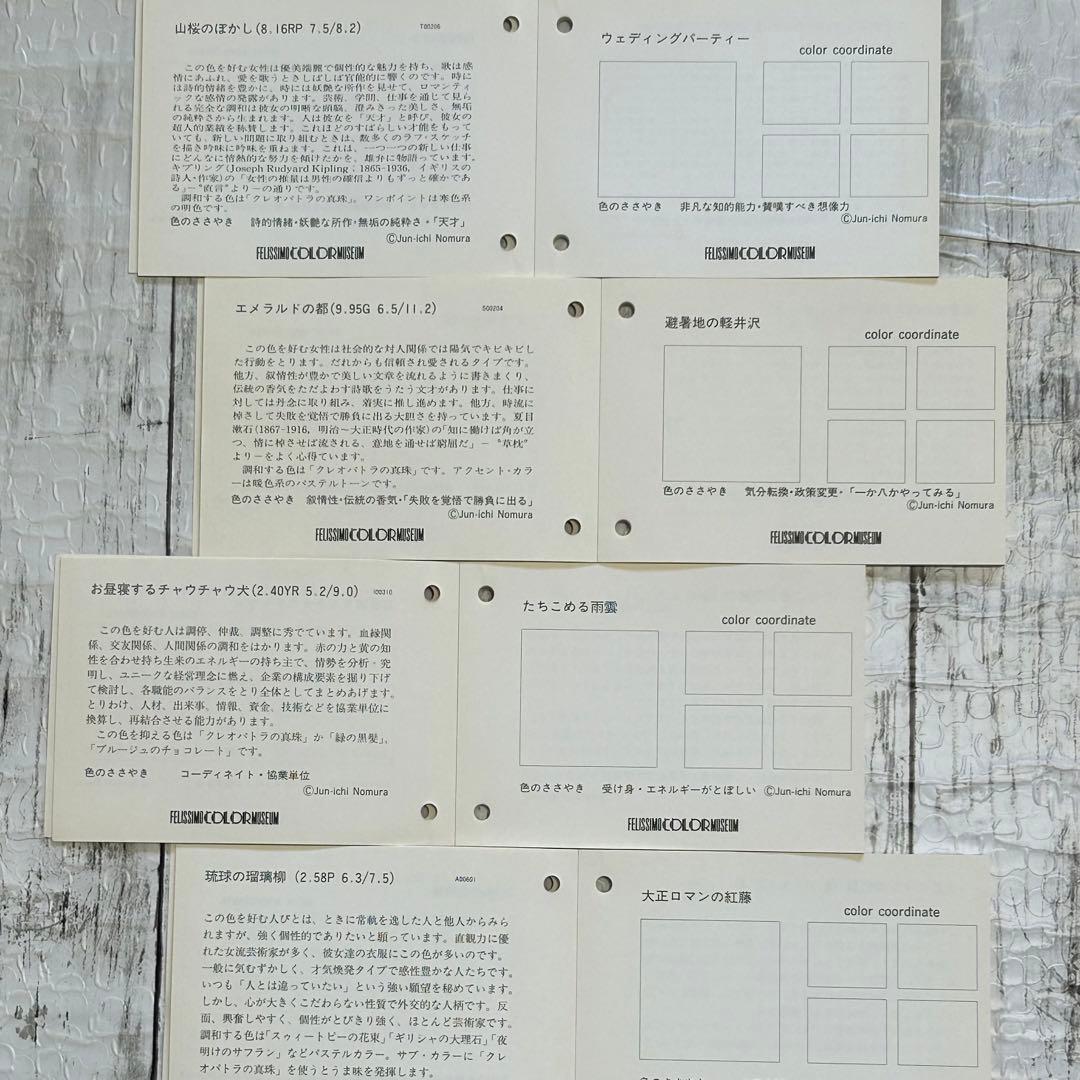 山桜のぼかし(8.16RP 7.5/8.2) T00206
この色を好む女性は優美端麗で個性的な魅力を持ち、歌は感
情にあふれ、愛を歌うときしばしば官能的に響くのです。時に
は詩的情緒を豊かに、時には妖艶な所作を見せて、ロマンティ
ックな感情の発露があります。芸術、学問、仕事を通じて見ら
れる完全な調和は彼女の明晰な頭脳、澄みきった美しさ、無垢
の純粋さから生まれます。人は彼女を「天才」と呼び、彼女の
超人的業績を称賛します。これほどのすばらしい才能をもって
いても、新しい問題に取り組むときは、数多くのラフ・スケッチ
を描き吟味に吟味を重ねます。これは、一つ一つの新しい仕事
にどんなに情熱的な努力を傾けたかを、雄弁に物語っています。
キプリング(Joseph Rudyard Kipling；1865-1936, イギリスの
詩人・作家)の「女性の推量は男性の確信よりもずっと確かであ
る」－“直言”より－の通りです。
調和する色は「クレオパトラの真珠」。ワンポイントは寒色系
の明色です。
色のささやき 詩的情緒・妖艶な所作・無垢の純粋さ・「天才」
©Jun-ichi Nomura
FELISSIMO COLOR MUSEUM
ウェディングパーティー
color coordinate
色のささやき 非凡な知的能力・賛嘆すべき想像力
©Jun-ichi Nomura
FELISSIMO COLOR MUSEUM
エメラルドの都(9.95G 6.5/11.2) S00204
この色を好む女性は社会的な対人関係では陽気でキビキビし
た行動をとります。だれからも信頼され愛されるタイプです。
他方、叙情性が豊かで美しい文章を流れるように書きまくり、
伝統の香気をただよわす詩歌をうたう文才があります。仕事に
対しては丹念に取り組み、着実に推し進めます。他方、時流に
棹さして失敗を覚悟で勝負に出る大胆さを持っています。夏目
漱石(1867-1916, 明治～大正時代の作家)の「知に働けば角が立
つ、情に棹させば流される、意地を通せば窮屈だ」－“草枕”
より－をよく心得ています。
調和する色は「クレオパトラの真珠」です。アクセント・カラ
ーは暖色系のパステルトーンです。
色のささやき 叙情性・伝統の香気・「失敗を覚悟で勝負に出る」
©Jun-ichi Nomura
FELISSIMO COLOR MUSEUM
避暑地の軽井沢
color coordinate
色のささやき 気分転換・政策変更・「一か八かやってみる」
©Jun-ichi Nomura
FELISSIMO COLOR MUSEUM
お昼寝するチャウチャウ犬(2.40YR 5.2/9.0) I00310
この色を好む人は調停、仲裁、調整に秀でています。血縁関
係、交友関係、人間関係の調和をはかります。赤の力と黄の知
性を合わせ持ち生来のエネルギーの持ち主で、情勢を分析・究
明し、ユニークな経営理念に燃え、企業の構成要素を掘り下げ
て検討し、各職能のバランスをとり全体としてまとめあげます。
とりわけ、人材、出来事、情報、資金、技術などを協業単位に
換算し、再結合させる能力があります。
この色を抑える色は「クレオパトラの真珠」か「緑の黒髪」、
「ブルージュのチョコレート」です。
色のささやき コーディネイト・協業単位
©Jun-ichi Nomura
FELISSIMO COLOR MUSEUM
たちこめる雨雲
color coordinate
色のささやき 受け身・エネルギーがとぼしい ©Jun-ichi Nomura
FELISSIMO COLOR MUSEUM
琉球の瑠璃柳 (2.58P 6.3/7.5) A00601
この色を好む人びとは、ときに常軌を逸した人と他人からみら
れますが、強く個性的でありたいと願っています。直観力に優
れた女流芸術家が多く、彼女達の衣服にこの色が多いのです。
一般に気むずかしく、才気煥発タイプで感性豊かな人たちです。
いつも「人とは違っていたい」という強い願望を秘めています。
しかし、心が大きくこだわらない性質で外交的な人柄です。反
面、興奮しやすく、個性がとびきり強く、ほとんど芸術家です。
調和する色は「スウィートピーの花束」「ギリシャの大理石」「夜
明けのサフラン」などパステルカラー。サブ・カラーに「クレ
オパトラの真珠」を使うとうま味を発揮します。
大正ロマンの紅藤
color coordinate